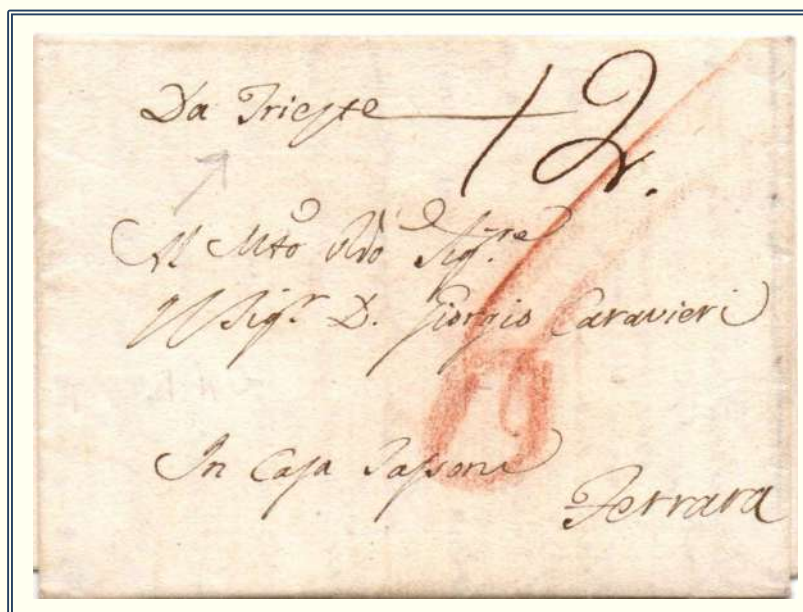 Da Trieste 12.
Al Mto Rdo Sigre
Il Sigr D. Giorgio Caravieri
19
In Casa Passoni
Ferrara